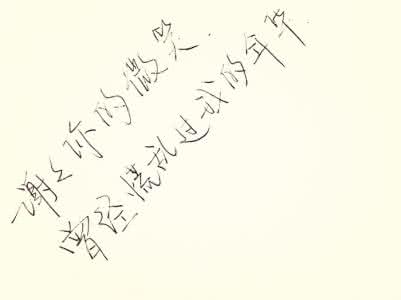 谢々你的微笑.
曾经慌乱过我的年华